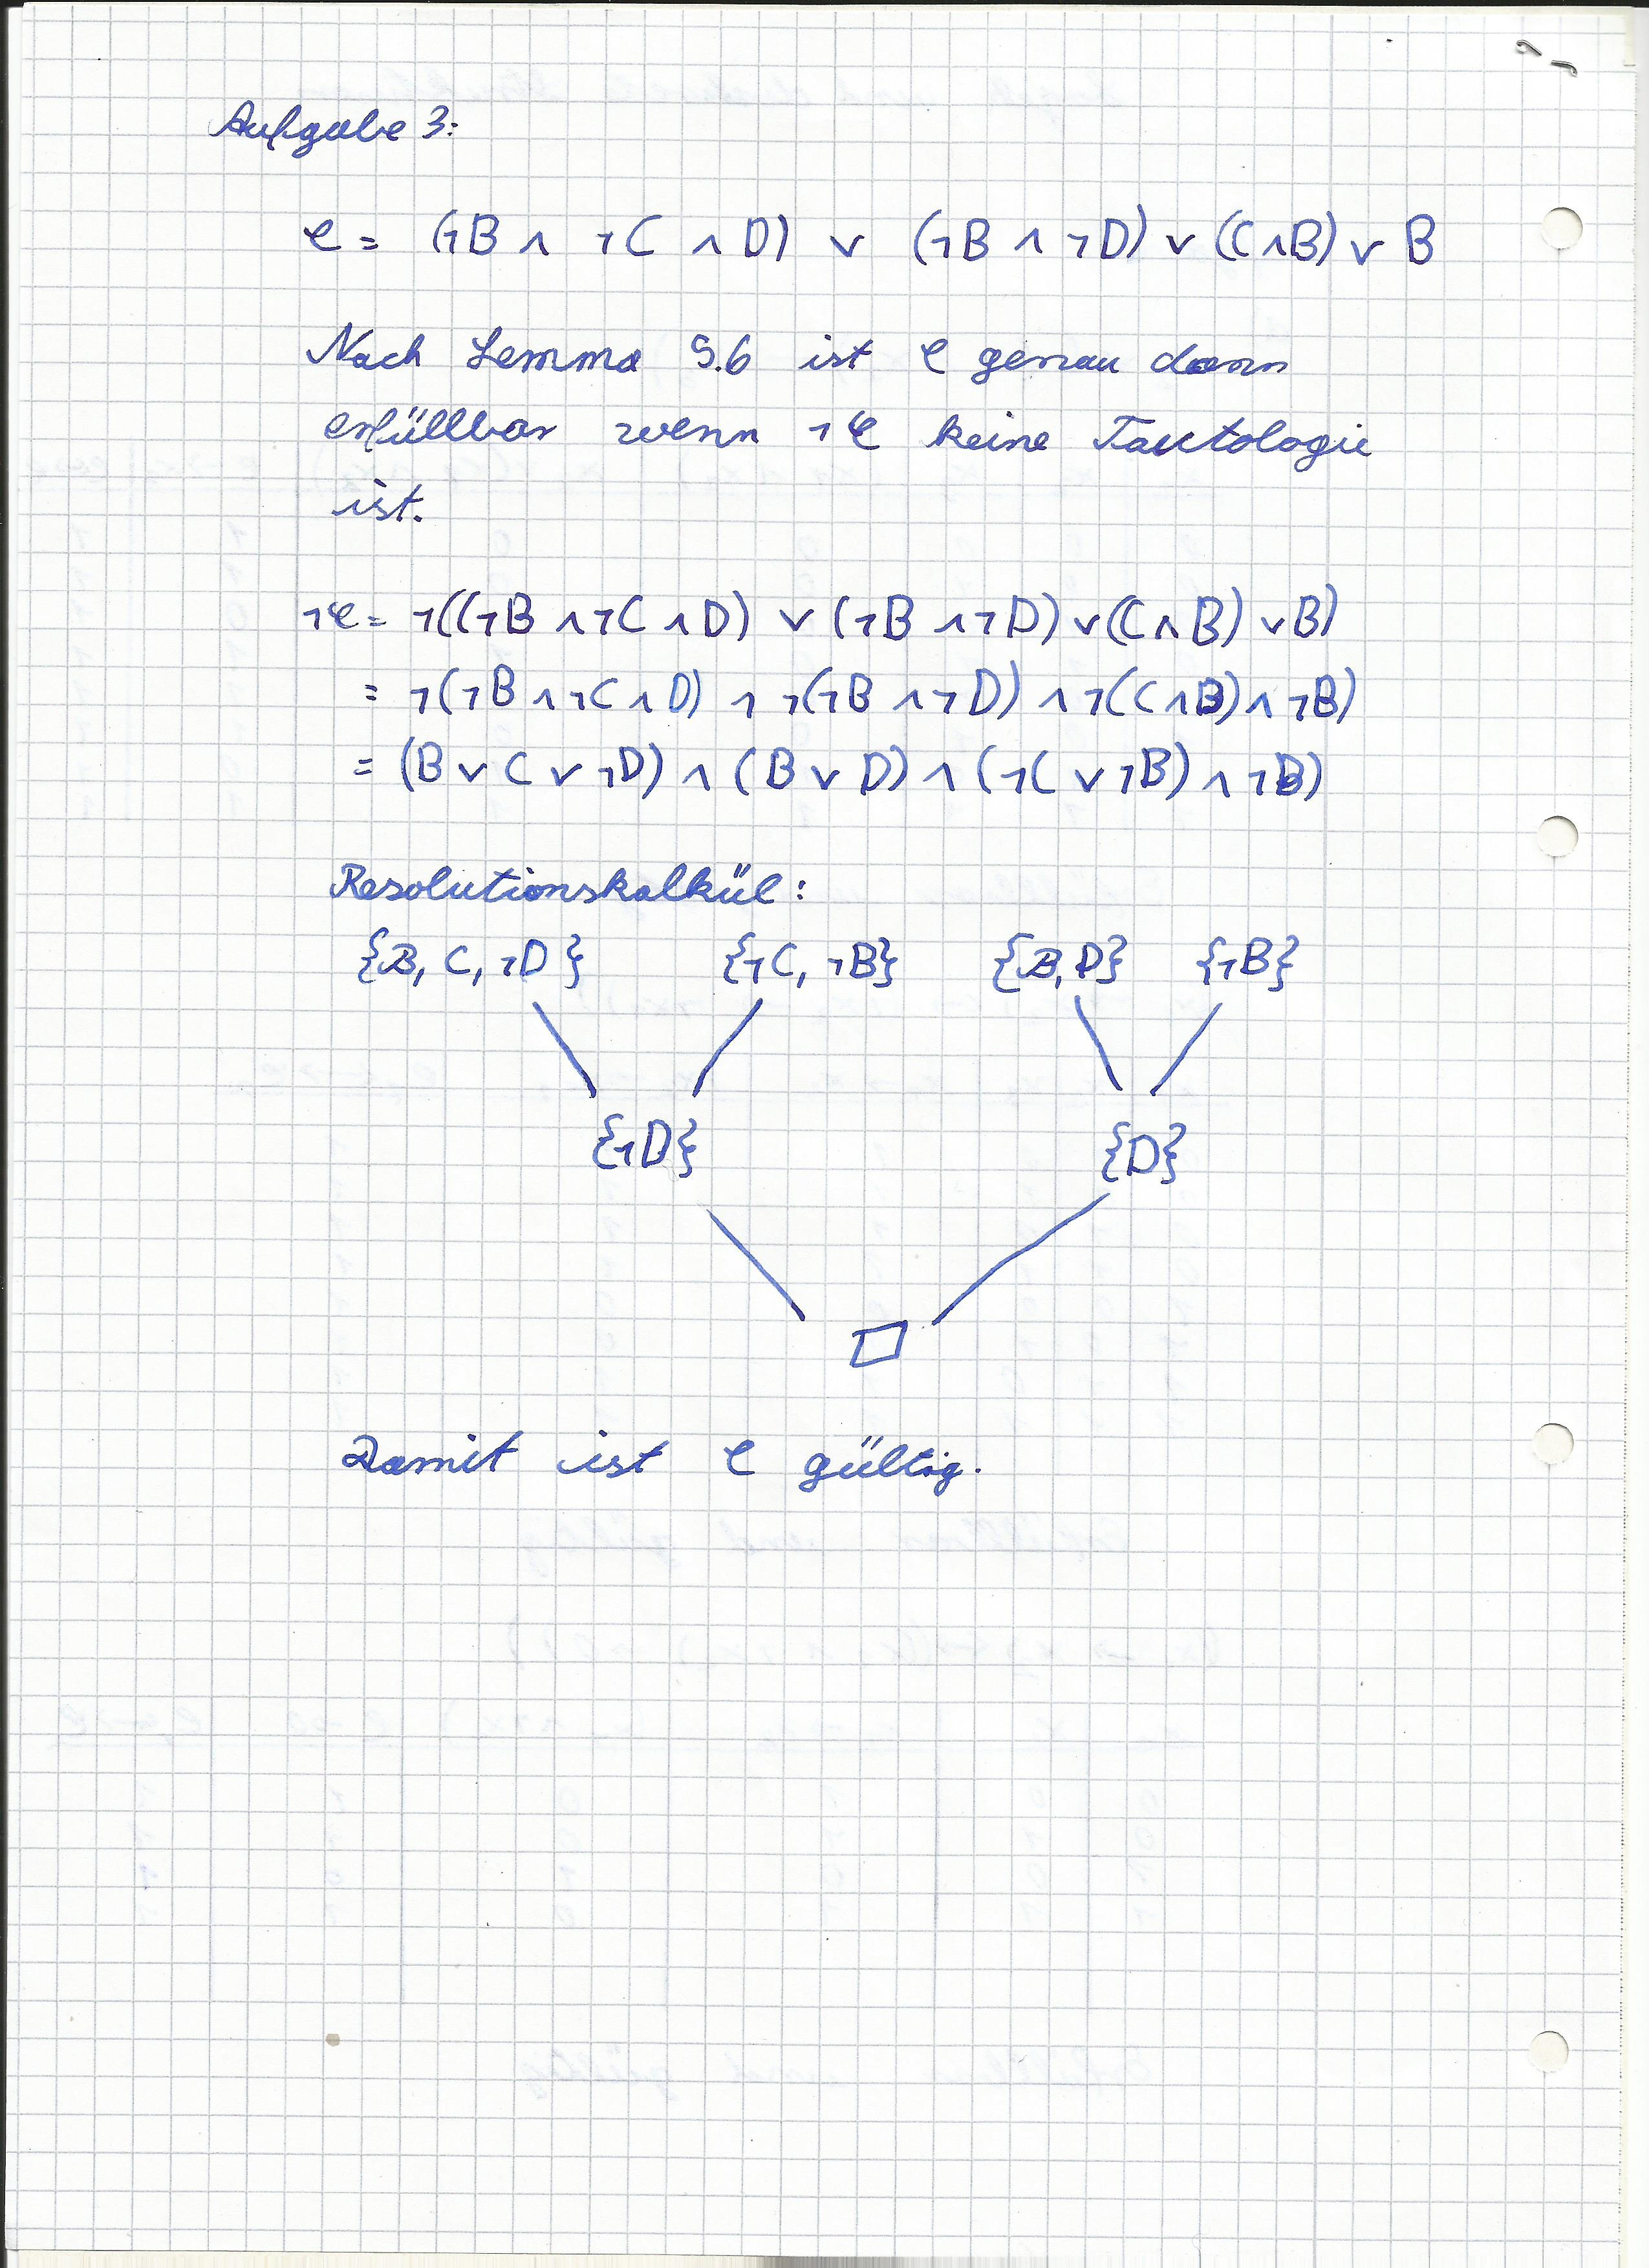 Aufgabe 3:
φ = (¬B ∧ ¬C ∧ D) ∨ (¬B ∧ ¬D) ∨ (C∧B) ∨ B
Nach Lemma 9.6 ist φ genau dann
erfüllbar wenn ¬φ keine Tautologie
ist.
¬φ = ¬((¬B ∧ ¬C ∧ D) ∨ (¬B ∧ ¬D) ∨ (C ∧ B) ∨ B)
= ¬(¬B ∧ ¬C ∧ D) ∧ ¬(¬B ∧ ¬D) ∧ ¬(C ∧ B) ∧ ¬B)
= (B ∨ C ∨ ¬D) ∧ (B ∨ D) ∧ (¬C ∨ ¬B) ∧ ¬B)
Resolutionskalkül:
{B, C, ¬D} {¬C, ¬B} {B, D} {¬B}
{¬D} {D}
□
Damit ist φ gültig.